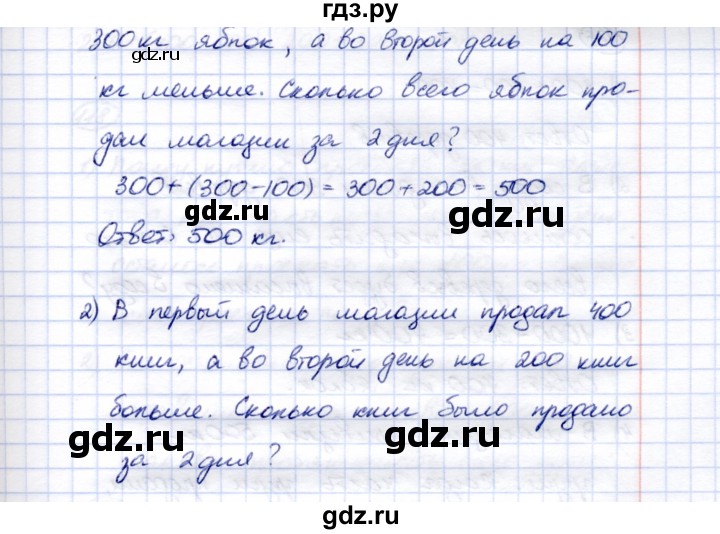 гдз.ру
300 кг яблок, а во второй день на 100
кг меньше. Сколько всего яблок про-
дал магазин за 2 дня?
300+(300-100) = 300+200 = 500
gdz.ru
gdz.ru
Ответ: 500 кг.
2) В первый день магазин продал 400
книг, а во второй день на 200 книг
больше. Сколько книг было продано
gdz.ru
gdz.ru
за 2 дня?
gdz.ru